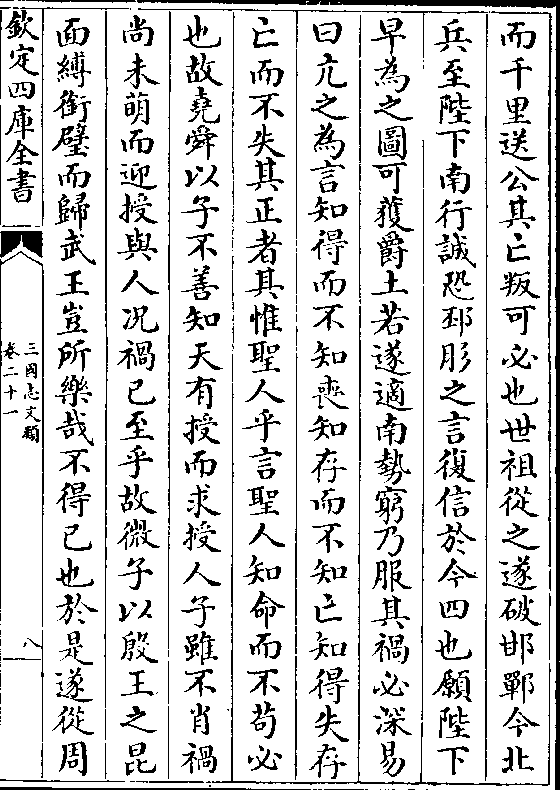 而千里送公其亡叛可必也世祖從之遂破邯鄲今北
兵至陛下南行誠恐邳肜之言復信於今四也願陛下
早為之圖可獲爵土若遂適南勢窮乃服其禍必深易
曰亢之為言知得而不知喪知存而不知亡知得失存
亡而不失其正者其惟聖人乎言聖人知命而不苟必
也故堯舜以子不善知天有授而求授人子雖不肖禍
尚未萌而迎授與人况禍已至乎故微子以殷王之昆
面縛銜璧而歸武王豈所樂哉不得已也於是遂從周
欽定四庫全書
三國志文類
卷二十一
八